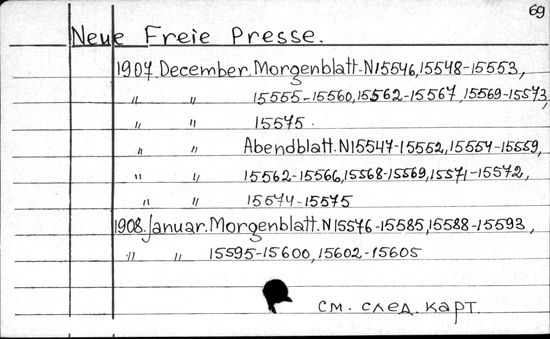 69
Neue Freie Presse.
1907. December. Morgenblatt. N15546, 15548-15553,
" " 15555-15560, 15562-15567, 15569-15573,
" " 15575.
" " Abendblatt. N15547-15552, 15554-15559,
" " 15562-15566, 15568-15569, 15571-15572,
" " 15574-15575
1908. Januar. Morgenblatt. N15576-15585, 15588-15593,
" " 15595-15600, 15602-15605
см. след. карт.